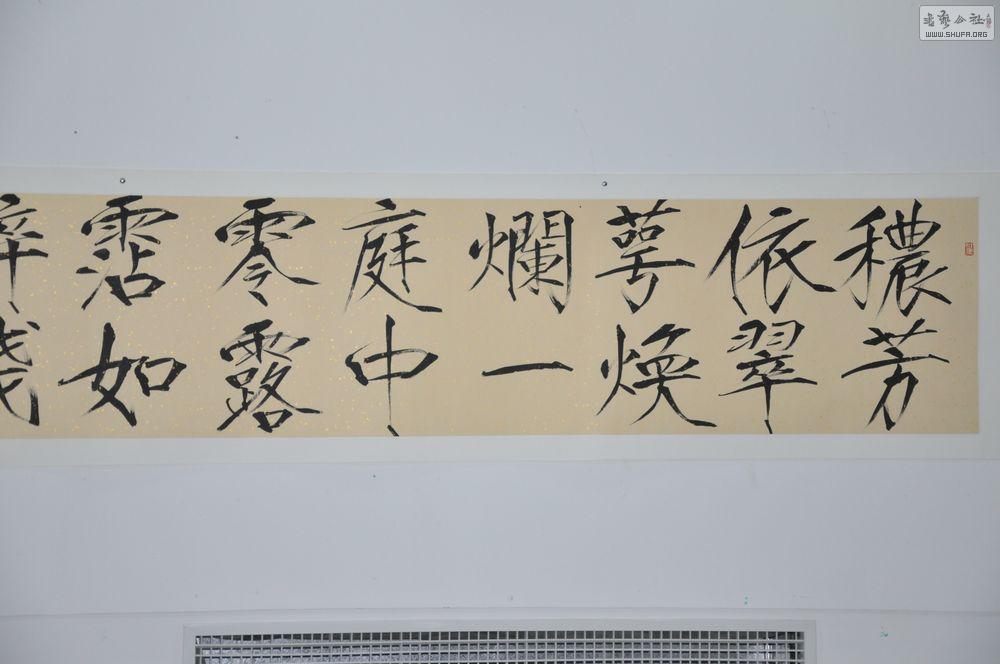 穠芳
依翠
萼煥
爛一
庭中
零露
霑如
醉殘
书艺公社
WWW.SHUFA.ORG